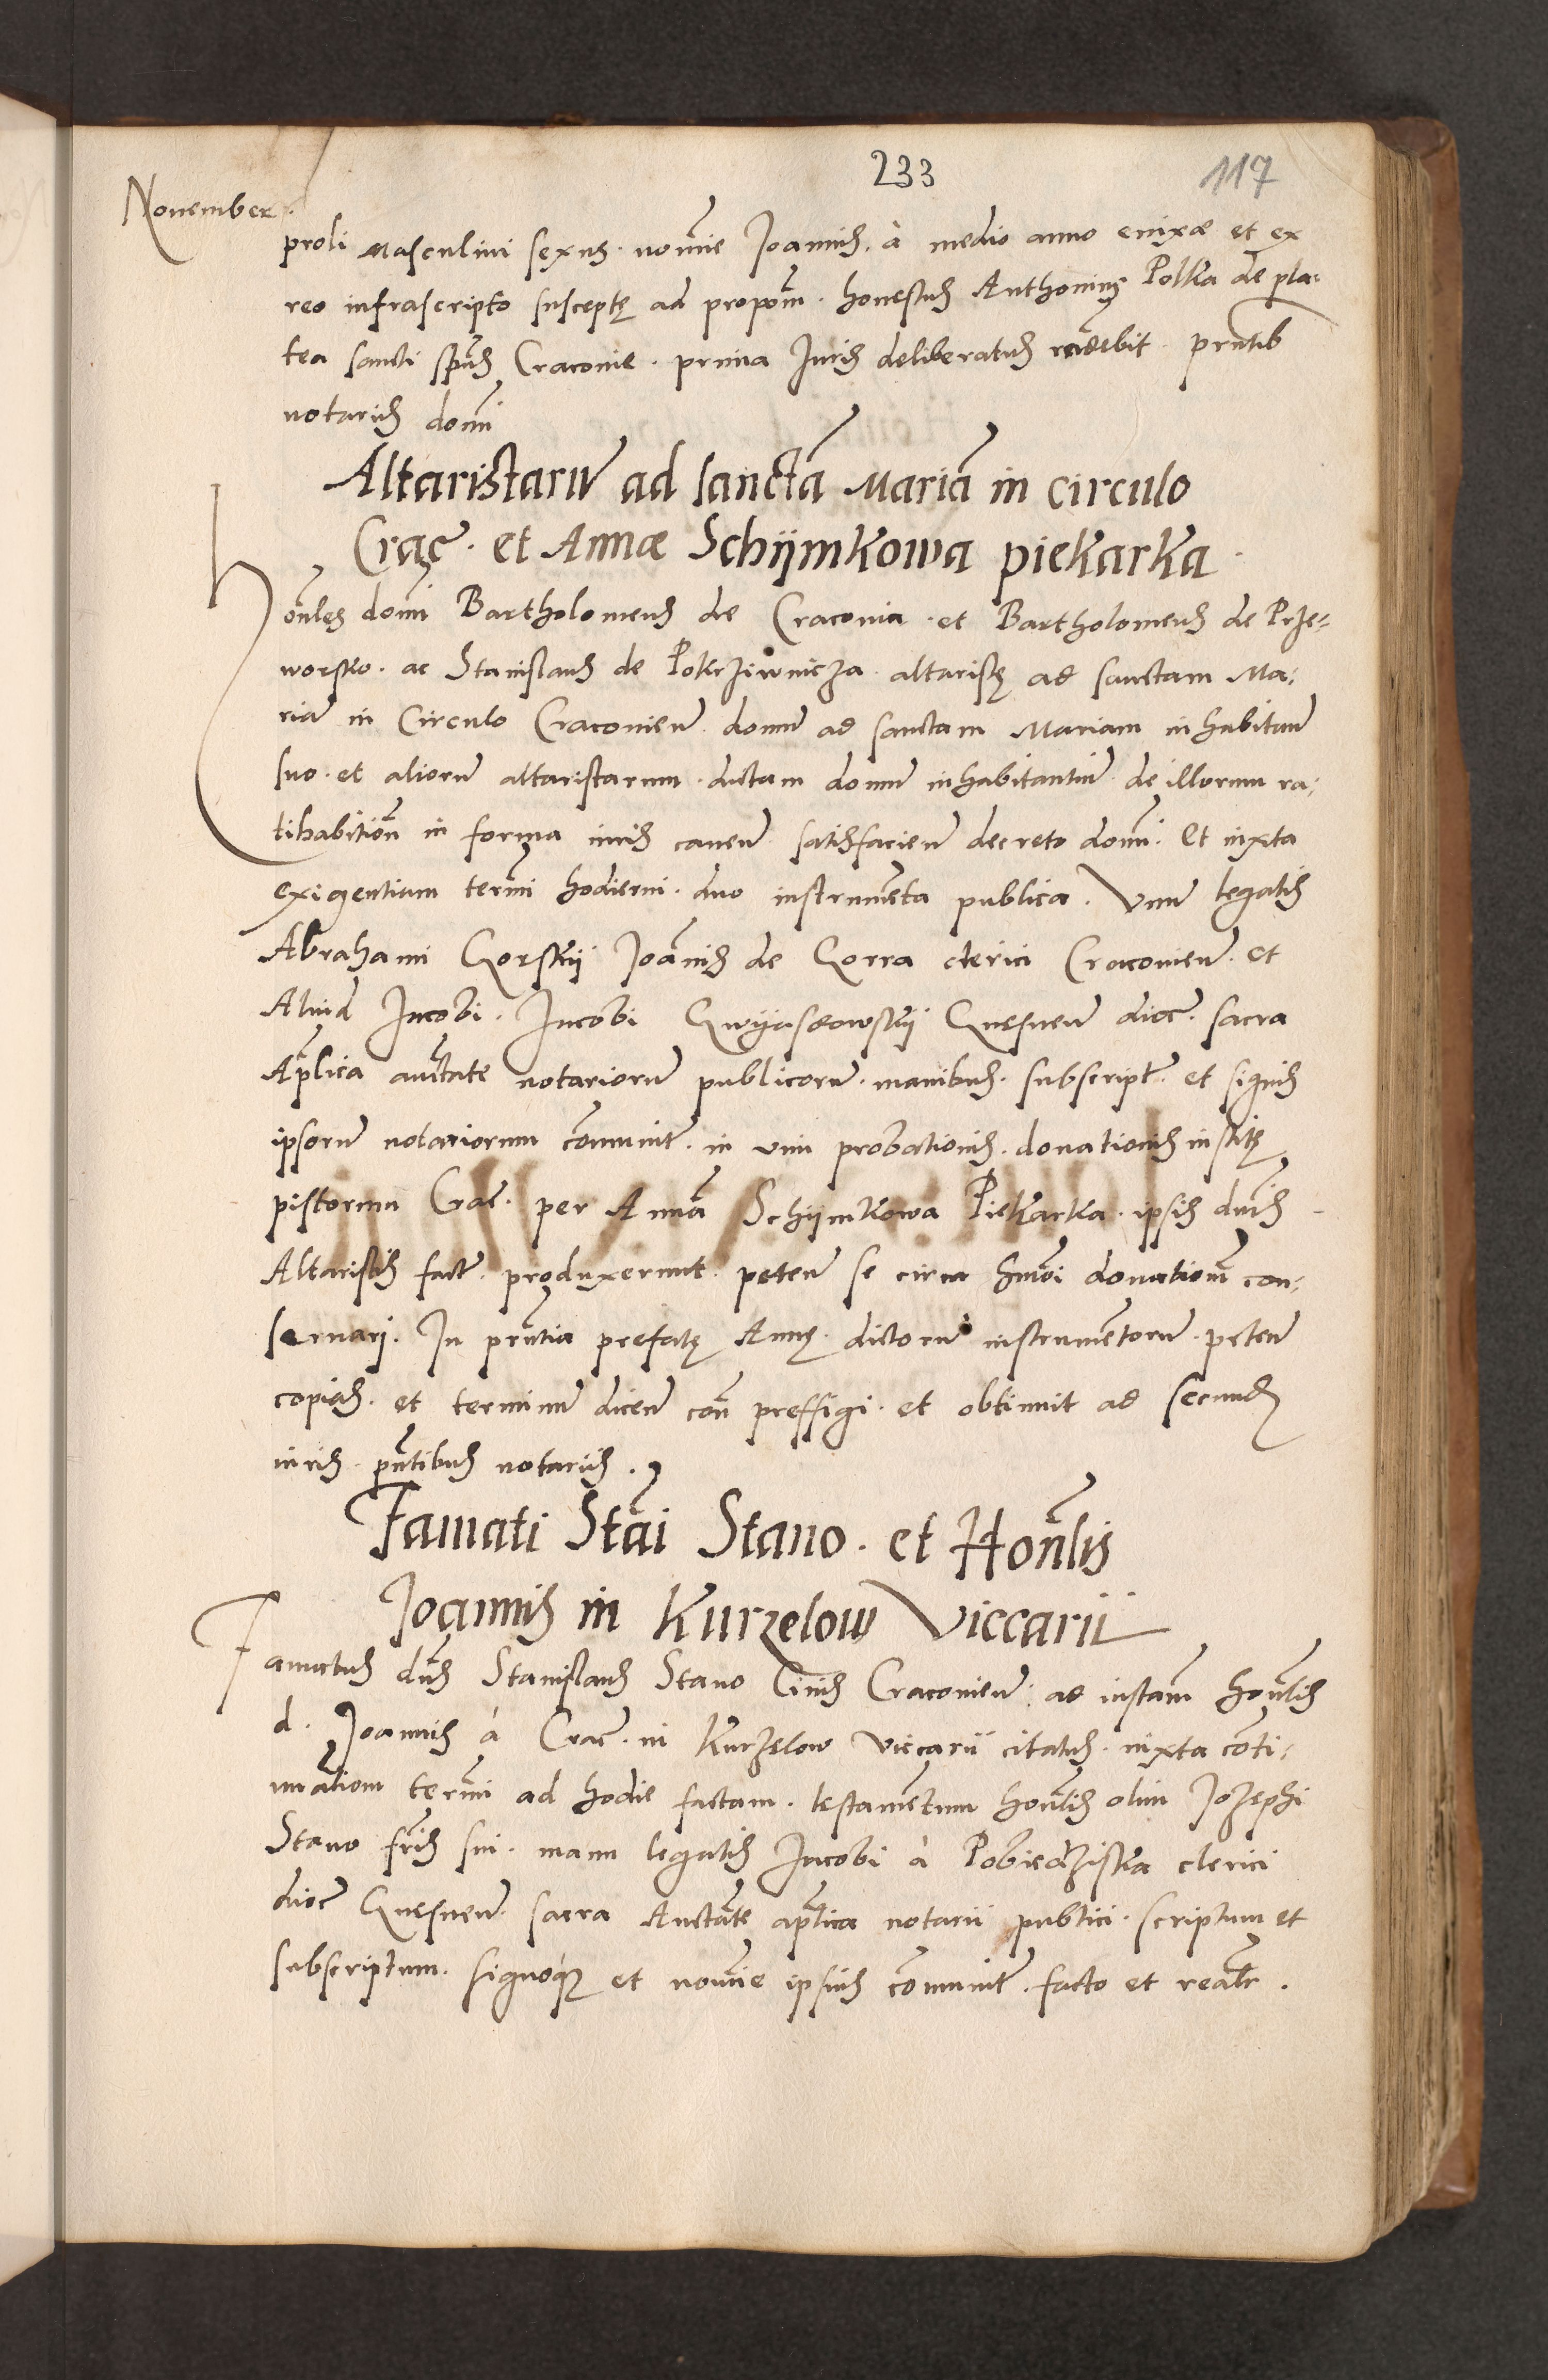 233
117
November.
proli Masculini sexus. nomīe Joannis. à medio anno enixæ et ex
reo infrascripto susceptę ad propoñm. honestus Anthonius Polka de pla-
tea sancti spūs Craconie. prima Juris deliberatus rñdebit. prñtib
notariis domi
Altaristarū ad sanctā Mariā in circulo
Crac̄. et Annæ Schijmkowa piekarka.
Honlēs domi Bartholomeus de Craconia. et Bartholomeus de Prze-
worsko. ac Stanislaus de Pokrziwnicza. altaristę ad sanctam Ma-
riā in Circulo Cracovieñ. domū ad sanctam Mariam inhabitañ
suo. et aliorū altaristarum. dictam domū inhabitantiū de illorum ra-
tihabitioñ in forma iuris caueñ satisfacieñ decreto domi. Et iuxta
exigentiam termī hodierni. duo instrumēta publica. Vnū legatis
Abrahami Gorskij Joānnis de Gorra clerici Cracovieñ. et
Aliud Jacobi. Jacobi Gwijasdowskij Gnesneñ dioc̄. sacra
Aplīca auctate notariorū publicorū. manibus. subscript̄. et signis
ipsorū notariorum cōmunit̄. in vim probationis. donationis institę
pistorum Crac̄. per Annā Schijmkowa Piekarka. ipsis dnis
Altaristis fact̄. produxerunt. peteñ se circa hmōi donationē con-
seruari. In prñtia prefatę Annę. dictorū instrumētorū. peteñ
copias. et terminū diceñ coñ preffigi. et obtinuit ad secundā
iuris. prñtibus notariis.
Famati Stāi Stano. et Honlīs
Joannis in Kurzelow Viccarij
Famatus dns Stanislaus Stano Civis Cracovieñ. ad instam̄ honlis
d. Joannis à Crac̄. in Kurzelow Viccarii citatus. iuxta cōti-
nuatiom termī ad hodie factam. testamētum honlis olim Jozephi
Stano fris sui. manu legatis Jacobi à Pobiedziska clerici
dioc̄ Gnesneñ. sacra Auctāte aplīca notarii publici. scriptum et
subscriptum. signoq̄ et nomīe ipsius cōmunit̄. facto et realr̄.